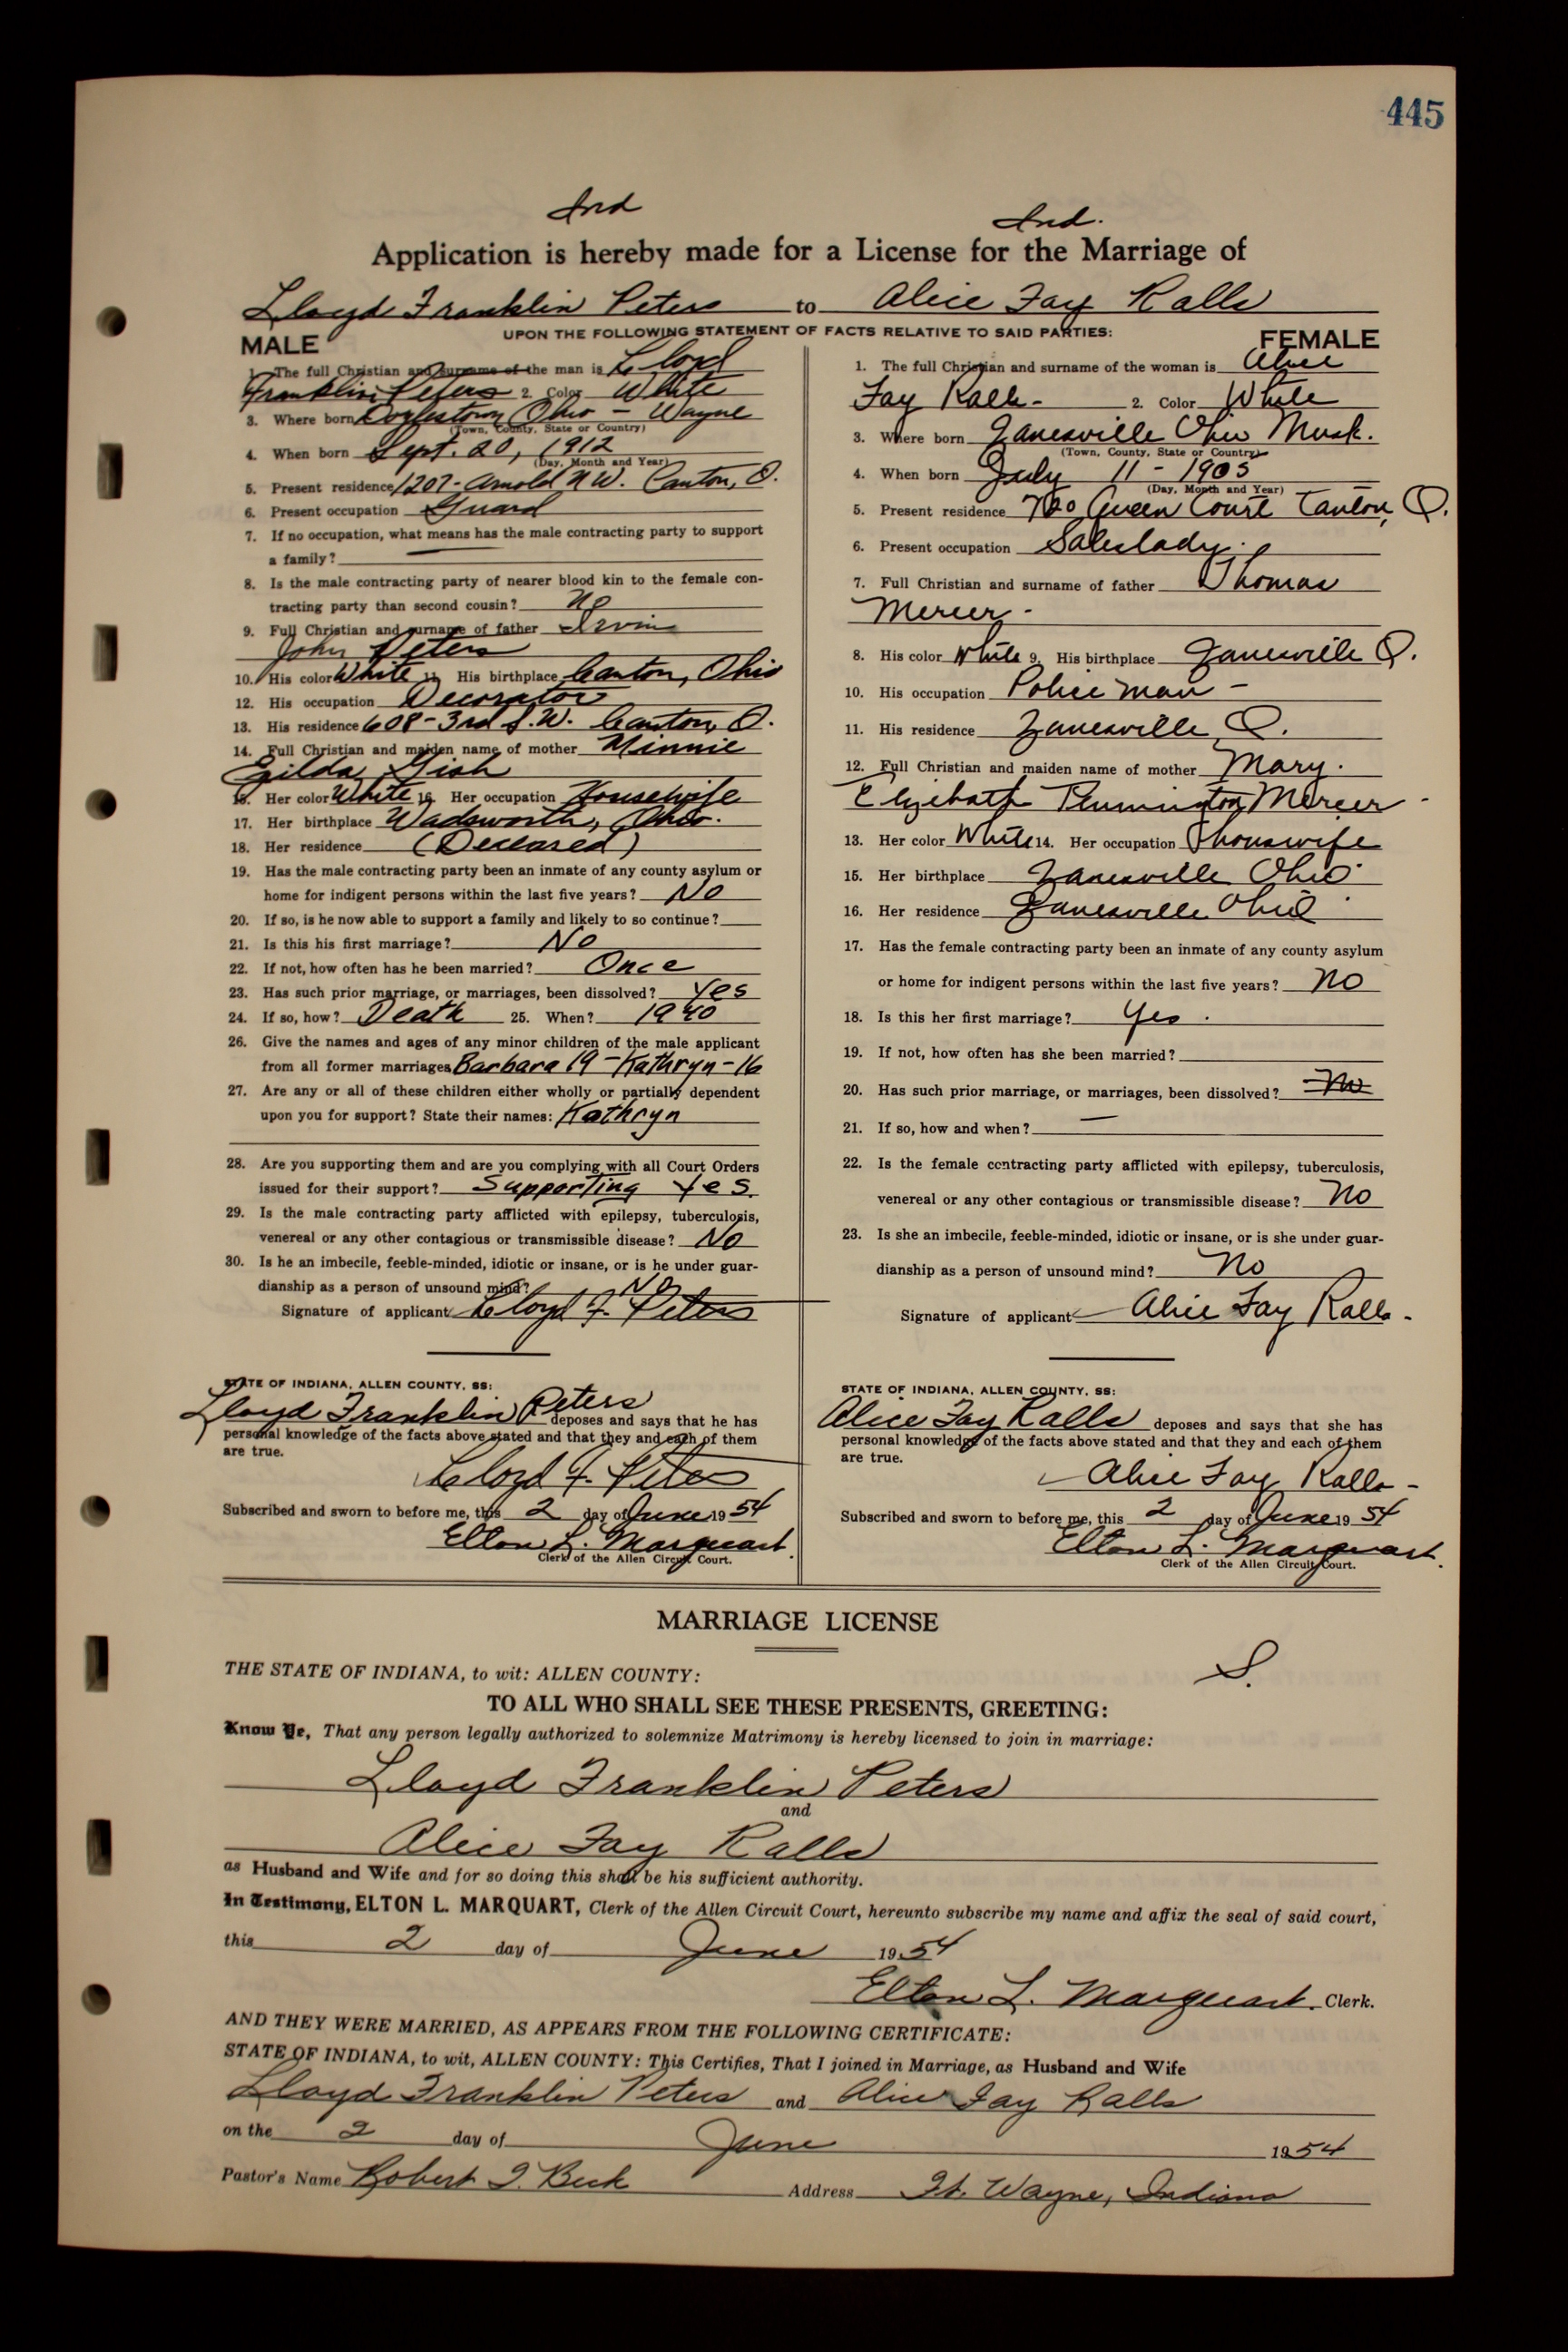 445
Ind Ind.
Application is hereby made for a License for the Marriage of
Lloyd Franklin Peters to Alice Fay Ralls
UPON THE FOLLOWING STATEMENT OF FACTS RELATIVE TO SAID PARTIES:
MALE
1. The full Christian and surname of the man is Lloyd
Franklin Peters 2. Color White
3. Where born Doylestown Ohio - Wayne
(Town, County, State or Country)
4. When born Sept. 20, 1912
(Day, Month and Year)
5. Present residence 1207- Arnold N W. Canton, O.
6. Present occupation Guard
7. If no occupation, what means has the male contracting party to support
a family?
8. Is the male contracting party of nearer blood kin to the female con-
tracting party than second cousin? No
9. Full Christian and surname of father Irvin
John Peters
10. His color White 11. His birthplace Canton, Ohio
12. His occupation Decorator
13. His residence 608-3rd S.W. Canton, O.
14. Full Christian and maiden name of mother Minnie
Gilda Gish
15. Her color White 16. Her occupation Housewife
17. Her birthplace Wadsworth, Ohio.
18. Her residence (Deceased)
19. Has the male contracting party been an inmate of any county asylum or
home for indigent persons within the last five years? No
20. If so, is he now able to support a family and likely to so continue?
21. Is this his first marriage? No
22. If not, how often has he been married? Once
23. Has such prior marriage, or marriages, been dissolved? Yes
24. If so, how? Death 25. When? 1940
26. Give the names and ages of any minor children of the male applicant
from all former marriages Barbara 19 - Kathryn - 16
27. Are any or all of these children either wholly or partially dependent
upon you for support? State their names: Kathryn
28. Are you supporting them and are you complying with all Court Orders
issued for their support? Supporting Yes.
29. Is the male contracting party afflicted with epilepsy, tuberculosis,
venereal or any other contagious or transmissible disease? No
30. Is he an imbecile, feeble-minded, idiotic or insane, or is he under guar-
dianship as a person of unsound mind? No
Signature of applicant Lloyd F. Peters
STATE OF INDIANA, ALLEN COUNTY, SS:
Lloyd Franklin Peters deposes and says that he has
personal knowledge of the facts above stated and that they and each of them
are true.
Lloyd F. Peters
Subscribed and sworn to before me, this 2 day of June 19 54
Elton L. Marquart.
Clerk of the Allen Circuit Court.
FEMALE
1. The full Christian and surname of the woman is Alice
Fay Ralls - 2. Color White
3. Where born Zanesville Ohio Musk.
(Town, County, State or Country)
4. When born July 11 - 1905
(Day, Month and Year)
5. Present residence Queen Court Canton, O.
6. Present occupation Saleslady.
7. Full Christian and surname of father Thomas
Mercer -
8. His color White 9. His birthplace Zanesville O.
10. His occupation Policeman -
11. His residence Zanesville O.
12. Full Christian and maiden name of mother Mary.
Elizebath Pennington Mercer -
13. Her color White 14. Her occupation Housewife
15. Her birthplace Zanesville Ohio
16. Her residence Zanesville Ohio
17. Has the female contracting party been an inmate of any county asylum
or home for indigent persons within the last five years? No
18. Is this her first marriage? Yes.
19. If not, how often has she been married?
20. Has such prior marriage, or marriages, been dissolved? No
21. If so, how and when? —
22. Is the female contracting party afflicted with epilepsy, tuberculosis,
venereal or any other contagious or transmissible disease? No
23. Is she an imbecile, feeble-minded, idiotic or insane, or is she under guar-
dianship as a person of unsound mind? No
Signature of applicant Alice Fay Ralls -
STATE OF INDIANA, ALLEN COUNTY, SS:
Alice Fay Ralls deposes and says that she has
personal knowledge of the facts above stated and that they and each of them
are true.
Alice Fay Ralls -
Subscribed and sworn to before me, this 2 day of June 19 54
Elton L. Marquart.
Clerk of the Allen Circuit Court.
MARRIAGE LICENSE
S.
THE STATE OF INDIANA, to wit: ALLEN COUNTY:
TO ALL WHO SHALL SEE THESE PRESENTS, GREETING:
Know Ye, That any person legally authorized to solemnize Matrimony is hereby licensed to join in marriage:
Lloyd Franklin Peters
and
Alice Fay Ralls
as Husband and Wife and for so doing this shall be his sufficient authority.
In Testimony, ELTON L. MARQUART, Clerk of the Allen Circuit Court, hereunto subscribe my name and affix the seal of said court,
this 2 day of June 19 54
Elton L. Marquart. Clerk.
AND THEY WERE MARRIED, AS APPEARS FROM THE FOLLOWING CERTIFICATE:
STATE OF INDIANA, to wit, ALLEN COUNTY: This Certifies, That I joined in Marriage, as Husband and Wife
Lloyd Franklin Peters and Alice Fay Ralls
on the 2 day of June 19 54
Pastor's Name Robert Beck Address Ft. Wayne, Indiana